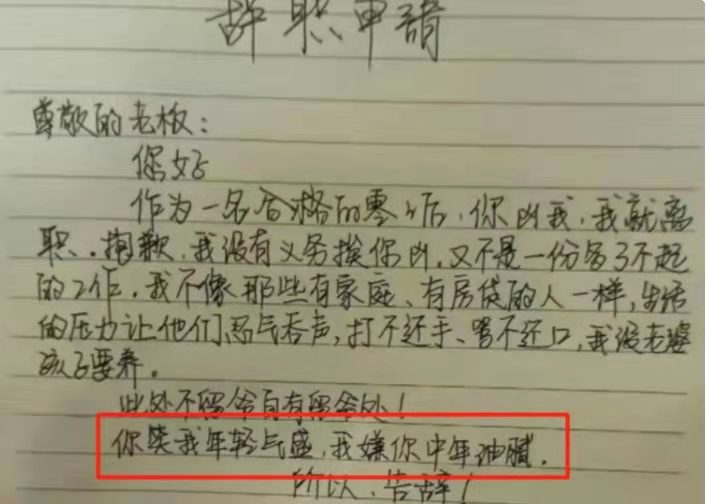 辞职申请
尊敬的老板：
你好
作为一名合格的零零后，你凶我，我就离
职．抱歉，我没有义务挨你凶，又不是一份多了不起
的工作，我不像那些有家庭、有房贷的人一样，生活
的压力让他们忍气吞声，打不还手、骂不还口，我没老婆
孩子要养。
此处不留爷自有留爷处！
你笑我年轻气盛，我嫌你中年油腻．
所以，告辞！